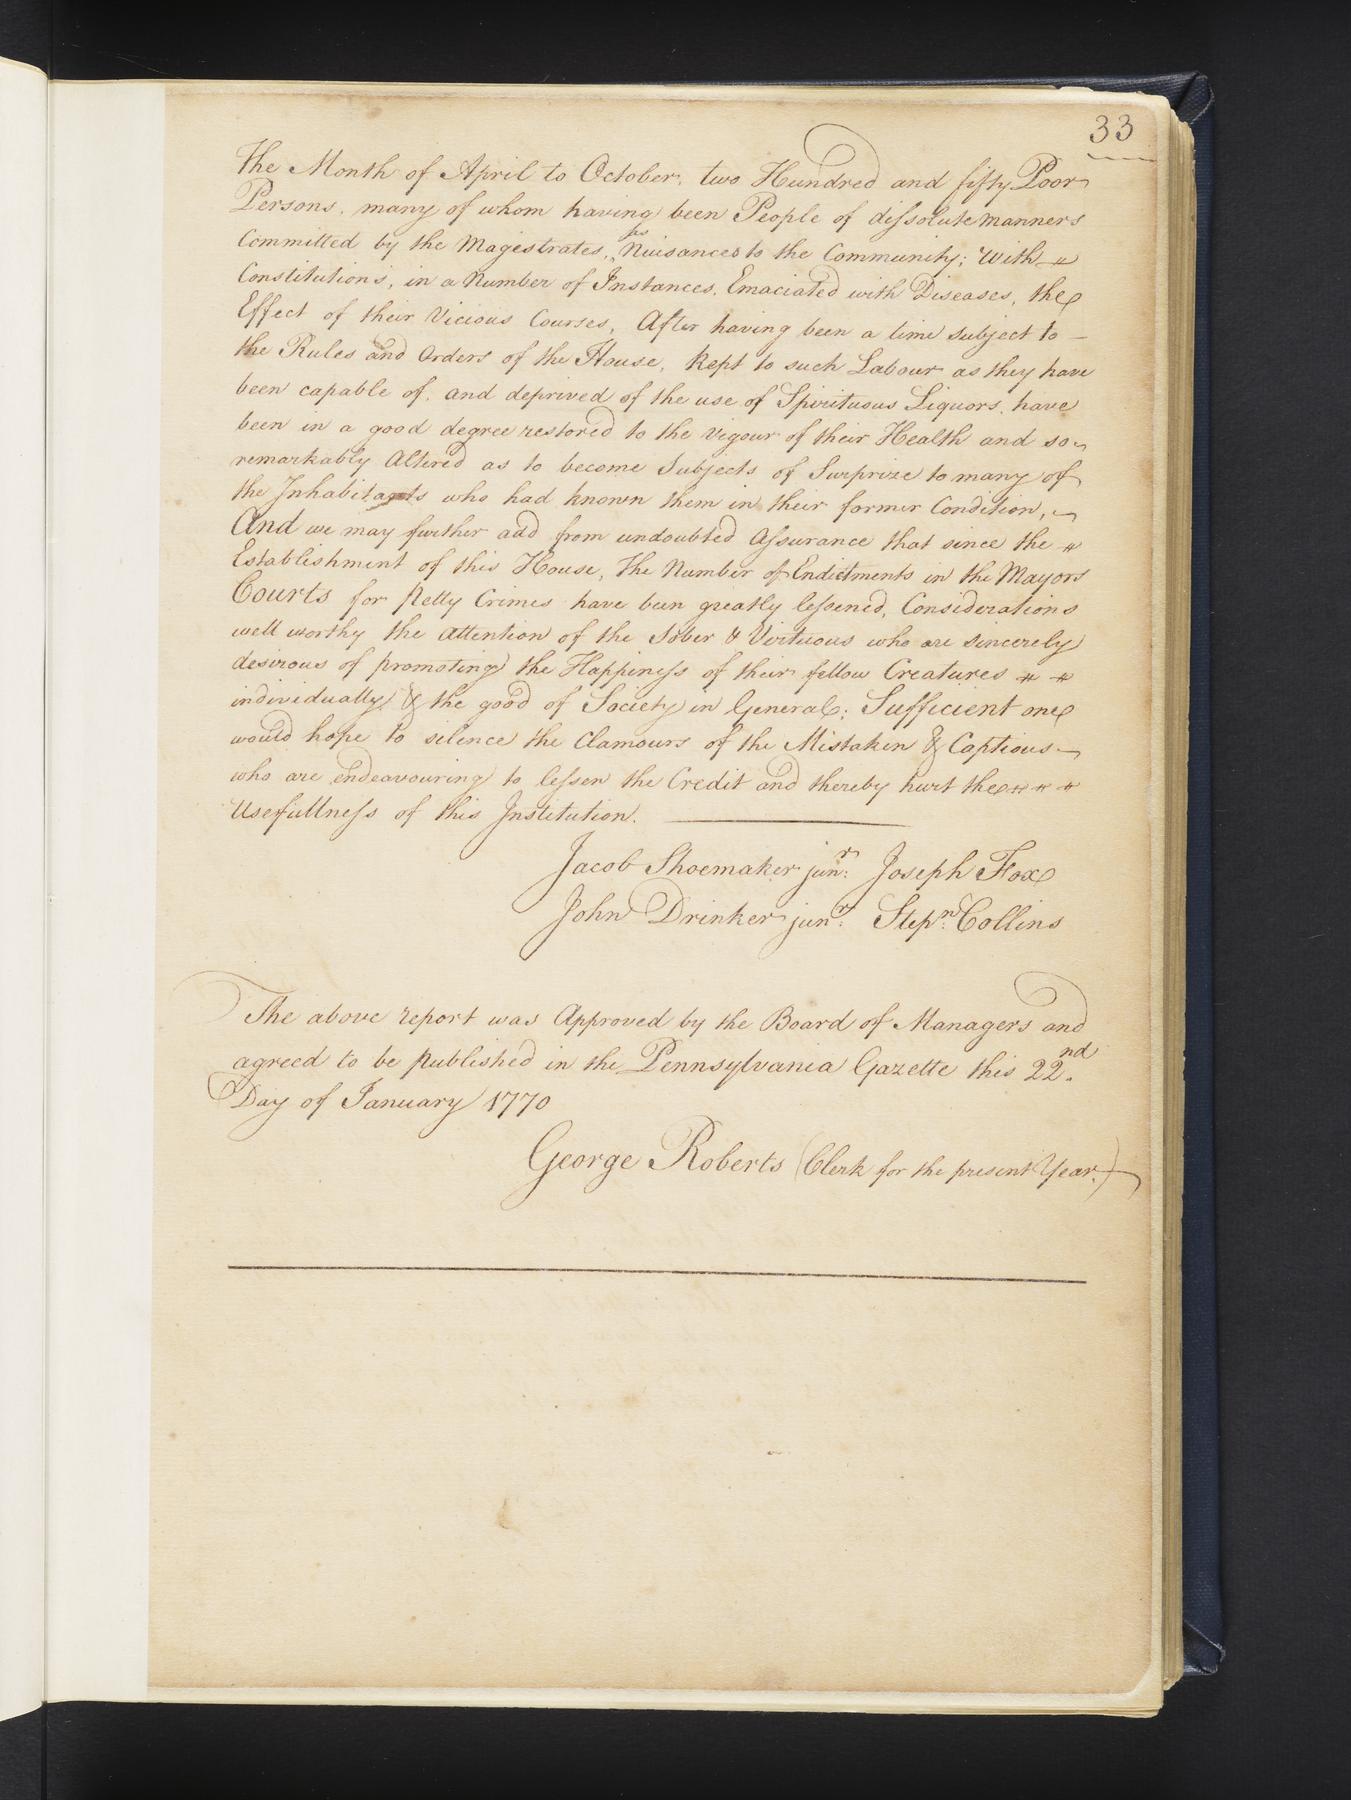 33
The Month of April to October, two Hundred and fifty Poor
Persons, many of whom having been People of dissolute manners
Committed by the Magestrates, as Nuisances to the Community; With
Constitutions, in a Number of Instances, Emaciated with Diseases, the
Effect of their Vicious Courses, After having been a time subject to —
the Rules and Orders of the House, kept to such Labour as they have
been capable of, and deprived of the use of Spirituous Liquors, have
been in a good degree restored to the vigour of their Health and so
remarkably Altered as to become Subjects of Surprize to many of
the Inhabitants who had known them in their former Condition,
And we may further add from undoubted Assurance that since the
Establishment of this House, The Number of Endictments in the Mayors
Courts for Petty Crimes have been greatly lessened, Considerations
well worthy the attention of the Sober & Virtuous who are sincerely
desirous of promoting the Happiness of their fellow Creatures
individually & the good of Society in General; Sufficient one
would hope to silence the Clamours of the Mistaken & Captious
who are endeavouring to lessen the Credit and thereby hurt the
Usefullness of this Institution.
Jacob Shoemaker junr. Joseph Fox
John Drinker junr. Stepn. Collins
The above report was Approved by the Board of Managers and
agreed to be published in the Pennsylvania Gazette this 22nd.
Day of January 1770
George Roberts (Clerk for the present Year.)